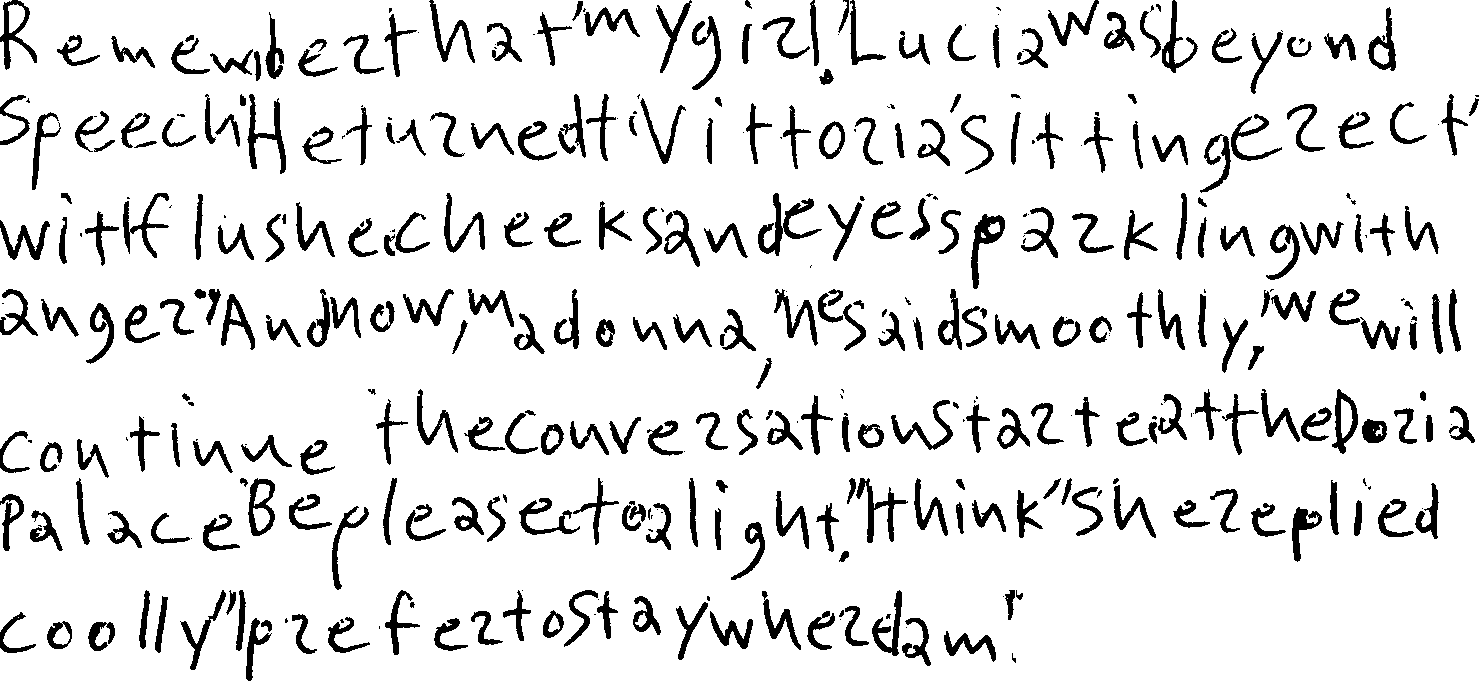 Remember that my girl." Lucia was beyond
speech. He turned t Vittoria sitting erect
with flushed cheeks and eyes sparkling with
anger. "And now, madonna," he said smoothly, "we will
continue the conversation started at the Doria
Palace. Be pleased to alight." "I think" she replied
coolly "I prefer to stay where I am."